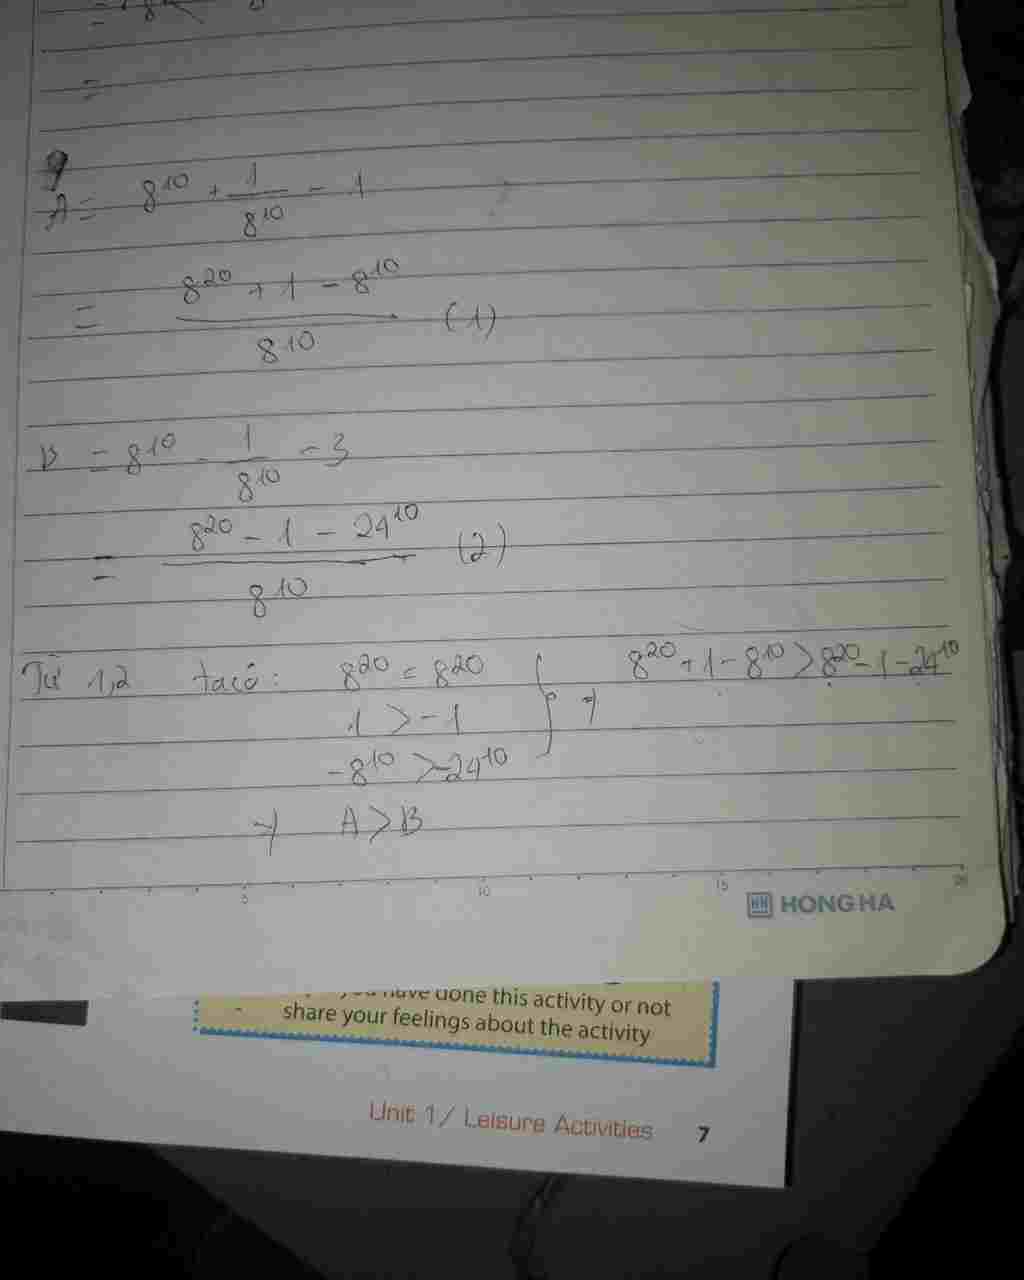 =
A = 8^10 + 1/8^10 - 1
= (8^20 + 1 - 8^10)/8^10 (1)
B = 8^10 - 1/8^10 - 3
= (8^20 - 1 - 24^10)/8^10 (2)
Từ 1,2 ta có: 8^20 = 8^20 } → 8^20 + 1 - 8^10 > 8^20 - 1 - 24^10
1 > -1
-8^10 > -24^10
→ A > B
5 10 15 20
HH HONG HA
you have done this activity or not
share your feelings about the activity
Unit 1/ Leisure Activities 7